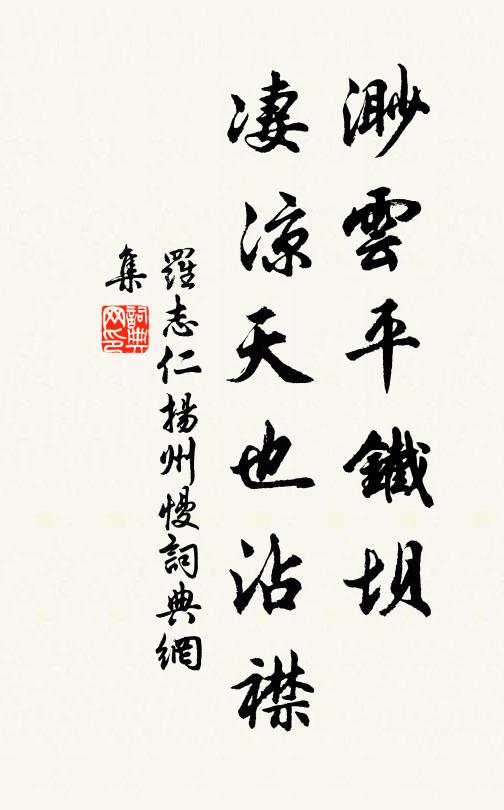 渺雲平鐵垻
淒涼天也沾襟
羅志仁揚州慢詞典網
集
詞典
网印